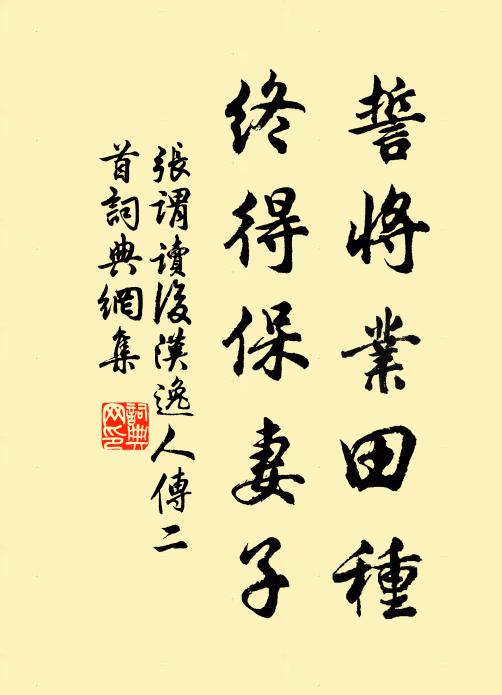 誓將業田種
終得保妻子
張謂讀後漢逸人傳二
首詞典網集
詞典
网印